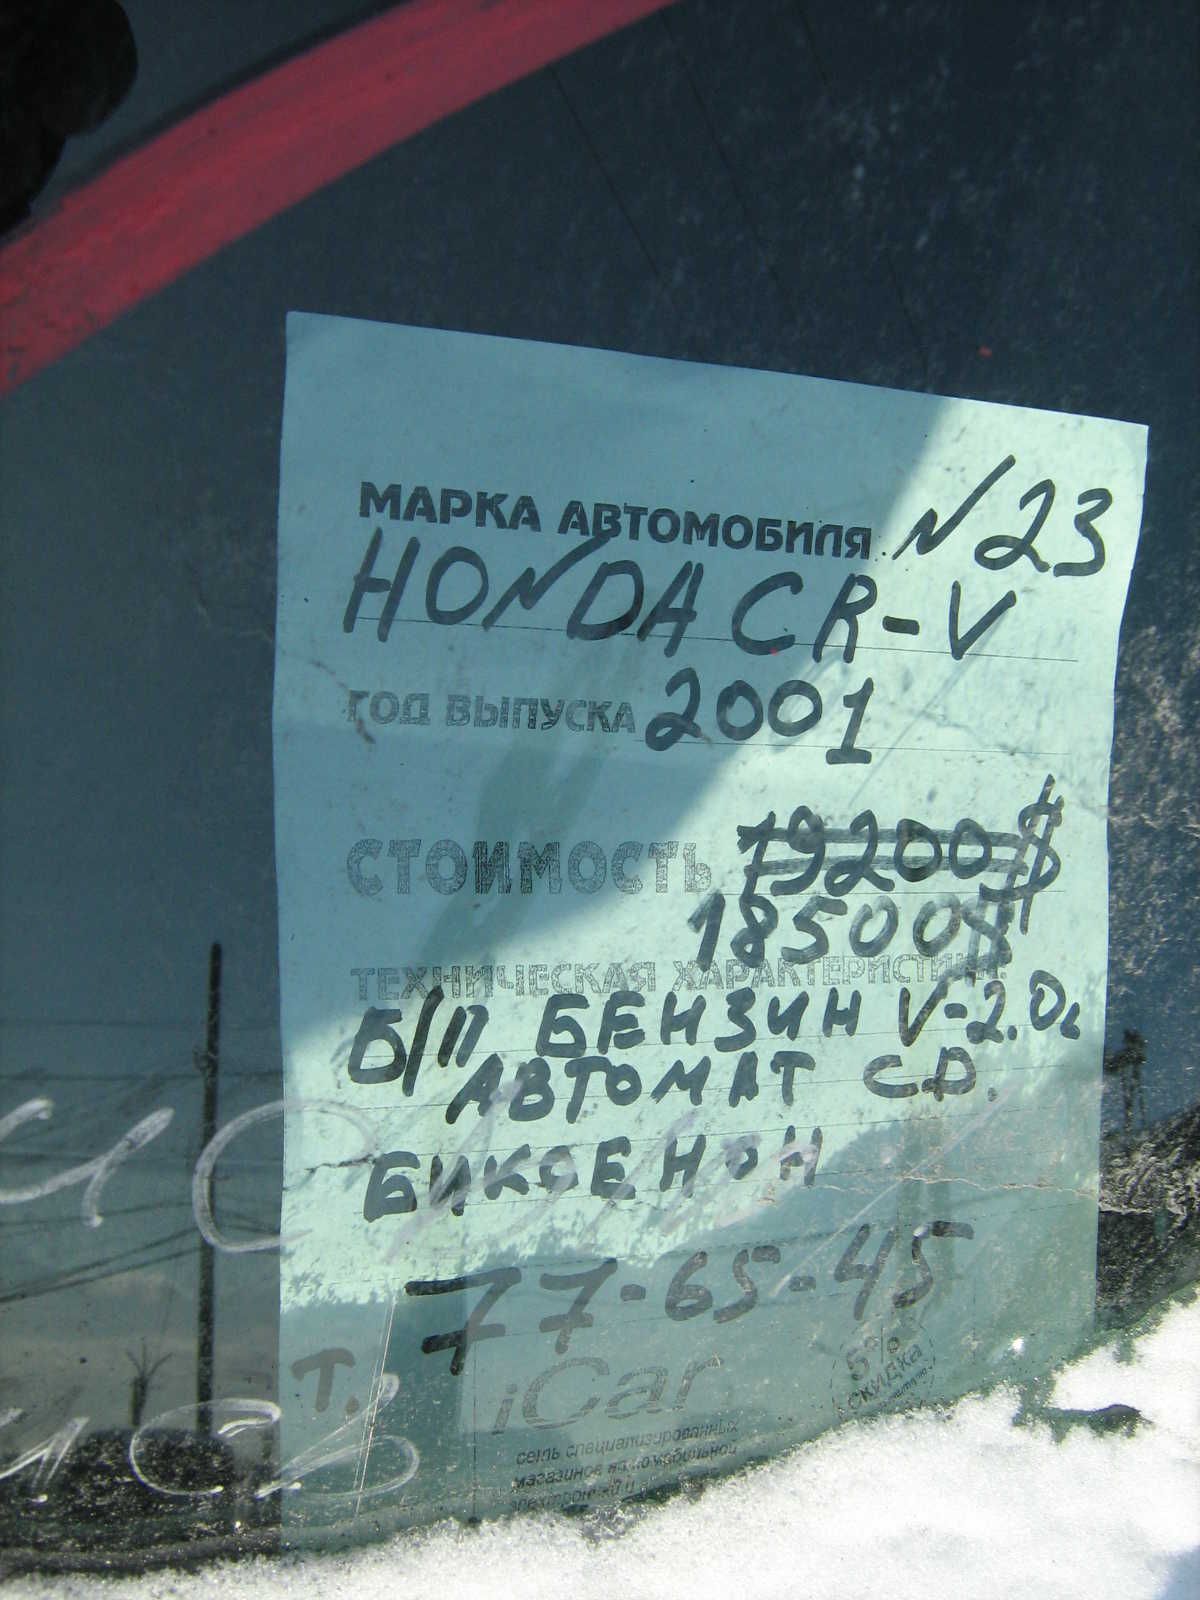 МАРКА АВТОМОБИЛЯ N 23
HONDA CR-V
ГОД ВЫПУСКА 2001
СТОИМОСТЬ 19200$
18500$
ТЕХНИЧЕСКАЯ ХАРАКТЕРИСТИКА
Б/П БЕНЗИН V-2.0
АВТОМАТ CD.
БИКСЕНОН
77-65-45
Т.
iCar
5% СКИДКА
сеть специализированных
магазинов автомобильной